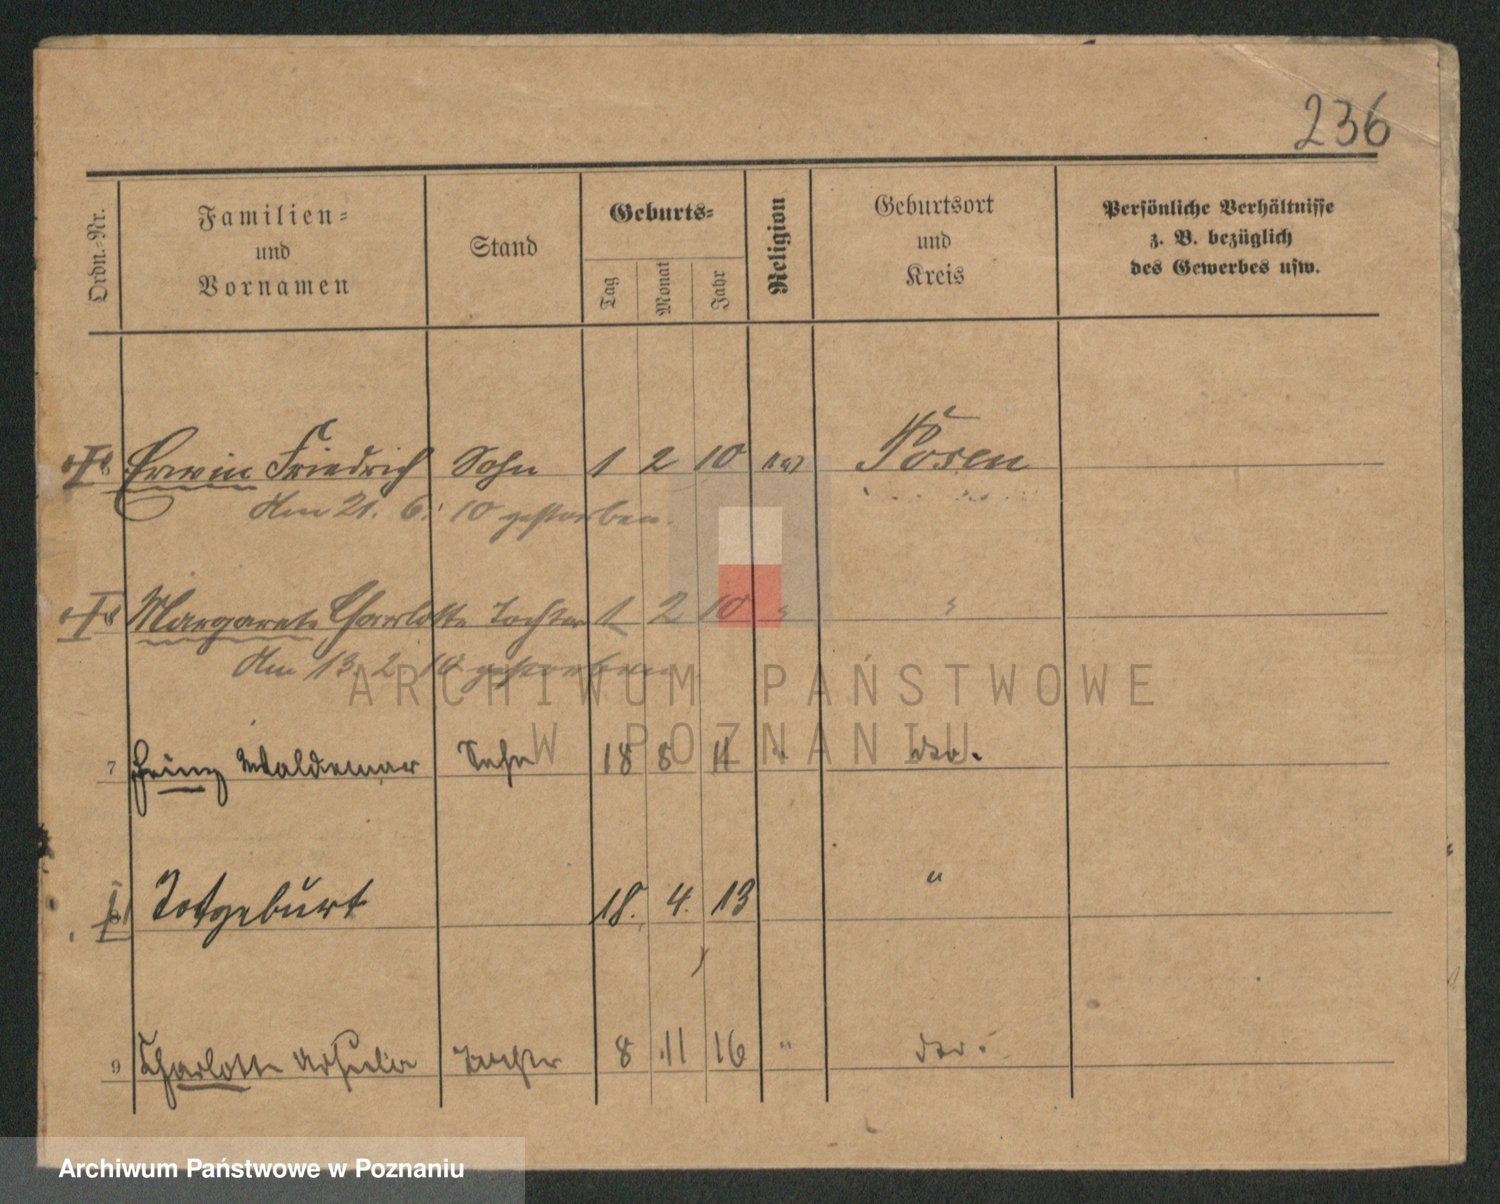 236
Ordn.-Nr.
Familien-
und
Vornamen
Stand
Geburts-
Tag
Monat
Jahr
Religion
Geburtsort
und
Kreis
Persönliche Verhältnisse
z. B. bezüglich
des Gewerbes usw.
Erwin Friedrich Sohn 1 2 10 Posen
Am 21. 6. 10 gestorben.
Margarete Charlotte Tochter 1 2 10 "
Am 13. 2. 10 gestorben.
ARCHIWUM PAŃSTWOWE
W POZNANIU
7 Heinz Waldemar Sohn 18 8 11 " do.
Totgeburt 18. 4. 13 "
9 Charlotte Ursula Tochter 8 11 16 " do.
Archiwum Państwowe w Poznaniu